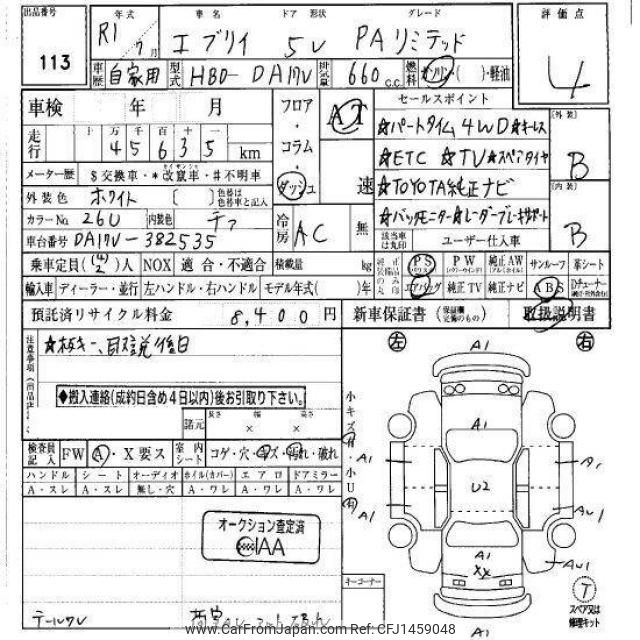 出品番号 年式 車名 ドア 形状 グレード 評価点
113
R1 7月 エブリイ 5V PAリミテッド
4
車歴 自家用 型式 HBD-DA17V 排気量 660 c.c. 燃料 ガソリン( )・軽油
車検 年 月
フロア・コラム・ダッシュ
AT 速
セールスポイント
走行 十 万 千 百 十 一
4 5 6 3 5 km
メーター歴 $交換車・*改竄車・#不明車
外装色 ホワイト [ ] 色替は色替車と記入
カラーNo. 26U 内装色
車台番号 DA17V-382535
冷房 AC 無
☆パートタイム4WD☆キーレス
☆ETC ☆TV☆スペアタイヤ
☆TOYOTA純正ナビ
☆バックモニター☆レーダーブレーキサポート
該当車は丸印 ユーザー仕入車
[外装]
B
[内装]
B
乗車定員( 4/2 )人 NOX 適合・不適合 積載量 kg
純正装備品のみ丸印
PS (パワステ) PW (パワーウインド) 純正AW (アルミホイル) サンルーフ 革シート
輸入車 ディーラー・並行 左ハンドル・右ハンドル モデル年式( )年
エアバッグ 純正TV 純正ナビ ABS Dチューナー
預託済リサイクル料金 8,400 円
新車保証書 (保証継続定のもの) 取扱説明書
注意事項
後日
◆搬入連絡(成約日含め4日以内)後お引取り下さい。
諸元 長さ 幅 高さ
× ×
検査員記入 FW A・X要ス 室内シート コゲ・穴・キズ・汚れ・破れ
ハンドル シート オーディオ ホイル(カバー) エアロ ドアミラー
A・スレ A・スレ 無し・穴 A・ワレ A・ワレ A・ワレ
オークション査定済
JAAA
テールワレ
左 右
A1
小キズ有
小U有
A1
A1
A1
U2
AU1
A1
A1
XX
AU1
A1
キーコーナー
T
スペア又は修理キット
www.CarFromJapan.com Ref: CFJ1459048